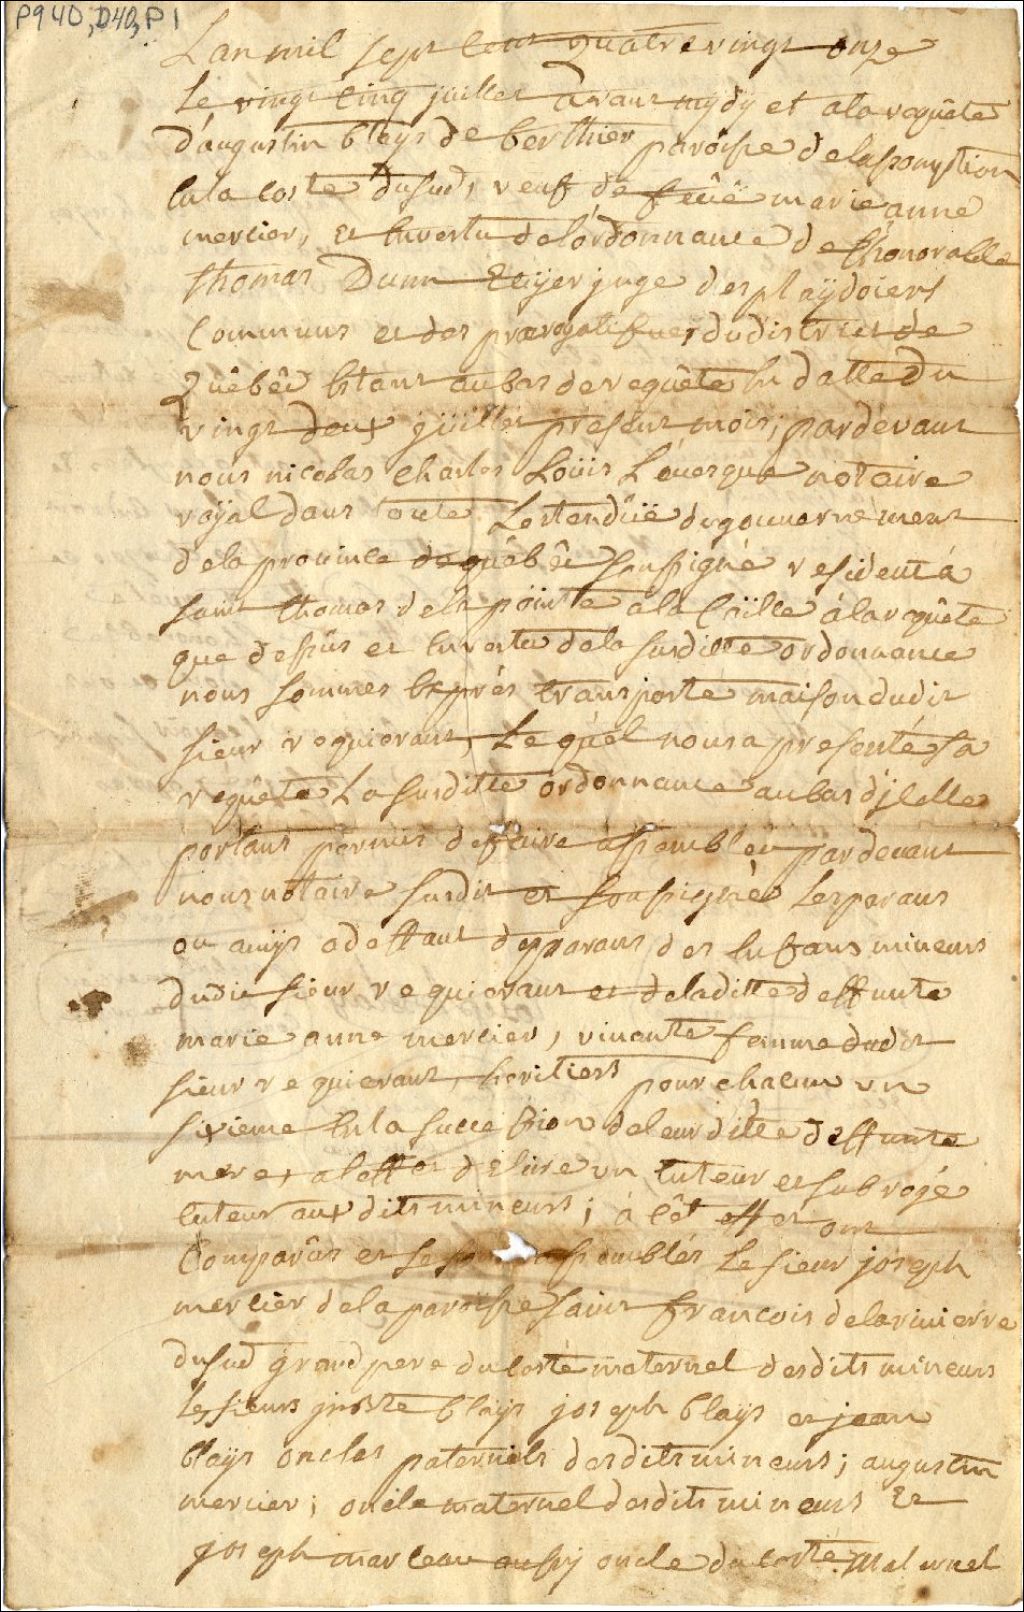 P940,D40,P1
Lan mil sept Cent quatrevingt onze
Le vingt Cinq juillet avant mydy et ala requête
d'augustin blays de berthier paroisse delassomption
En la Coste du sud, veuf de feuë marie anne
mercier, et En vertu de l'ordonnance de l'honorable
thomas Dunn Ecuyer juge des playdoiers
Communs et des prerogatives du district de
Québêc Etant au bas de requête En datte du
vingt deux juillet present mois; pardevant
nous nicolas Charles Loüis Levesque notaire
royal dans toute Lestenduë du gouvernement
dela province de québêc soussigné resident á
saint thomas dela pointe ala Caille á la requête
que dessus et En vertu dela susditte ordonnance
nous sommes Exprés transporté maison dudit
sieur requierant, Lequel nous a presenté sa
requête La susditte ordonnance au bas dÿcelle
portant permis de faire assembler par devant
nous notaire susdit et soussigné Les parans
ou amys adeffaut de parans des Enfans mineurs
dudit sieur requierant et deladitte deffunte
marie anne mercier, vivante femme dudit
sieur requierant, heritiers pour chacun un
sixieme En la succession de leur ditte deffunte
mere, aleffet delire un tuteur et subrogé
tuteur aux dits mineurs; á Cêt effet ont
Comparûs et se sont assemblés Le sieur joseph
mercier dela paroisse saint francois dela rivierre
dusud grand pere du Costé maternel desdits mineurs
Les sieurs juste blays joseph blays et jean
blays oncles paternels desdits mineurs; augustin
mercier; oncle maternel desdits mineurs Et
joseph marceau aussy oncle du Costé maternel